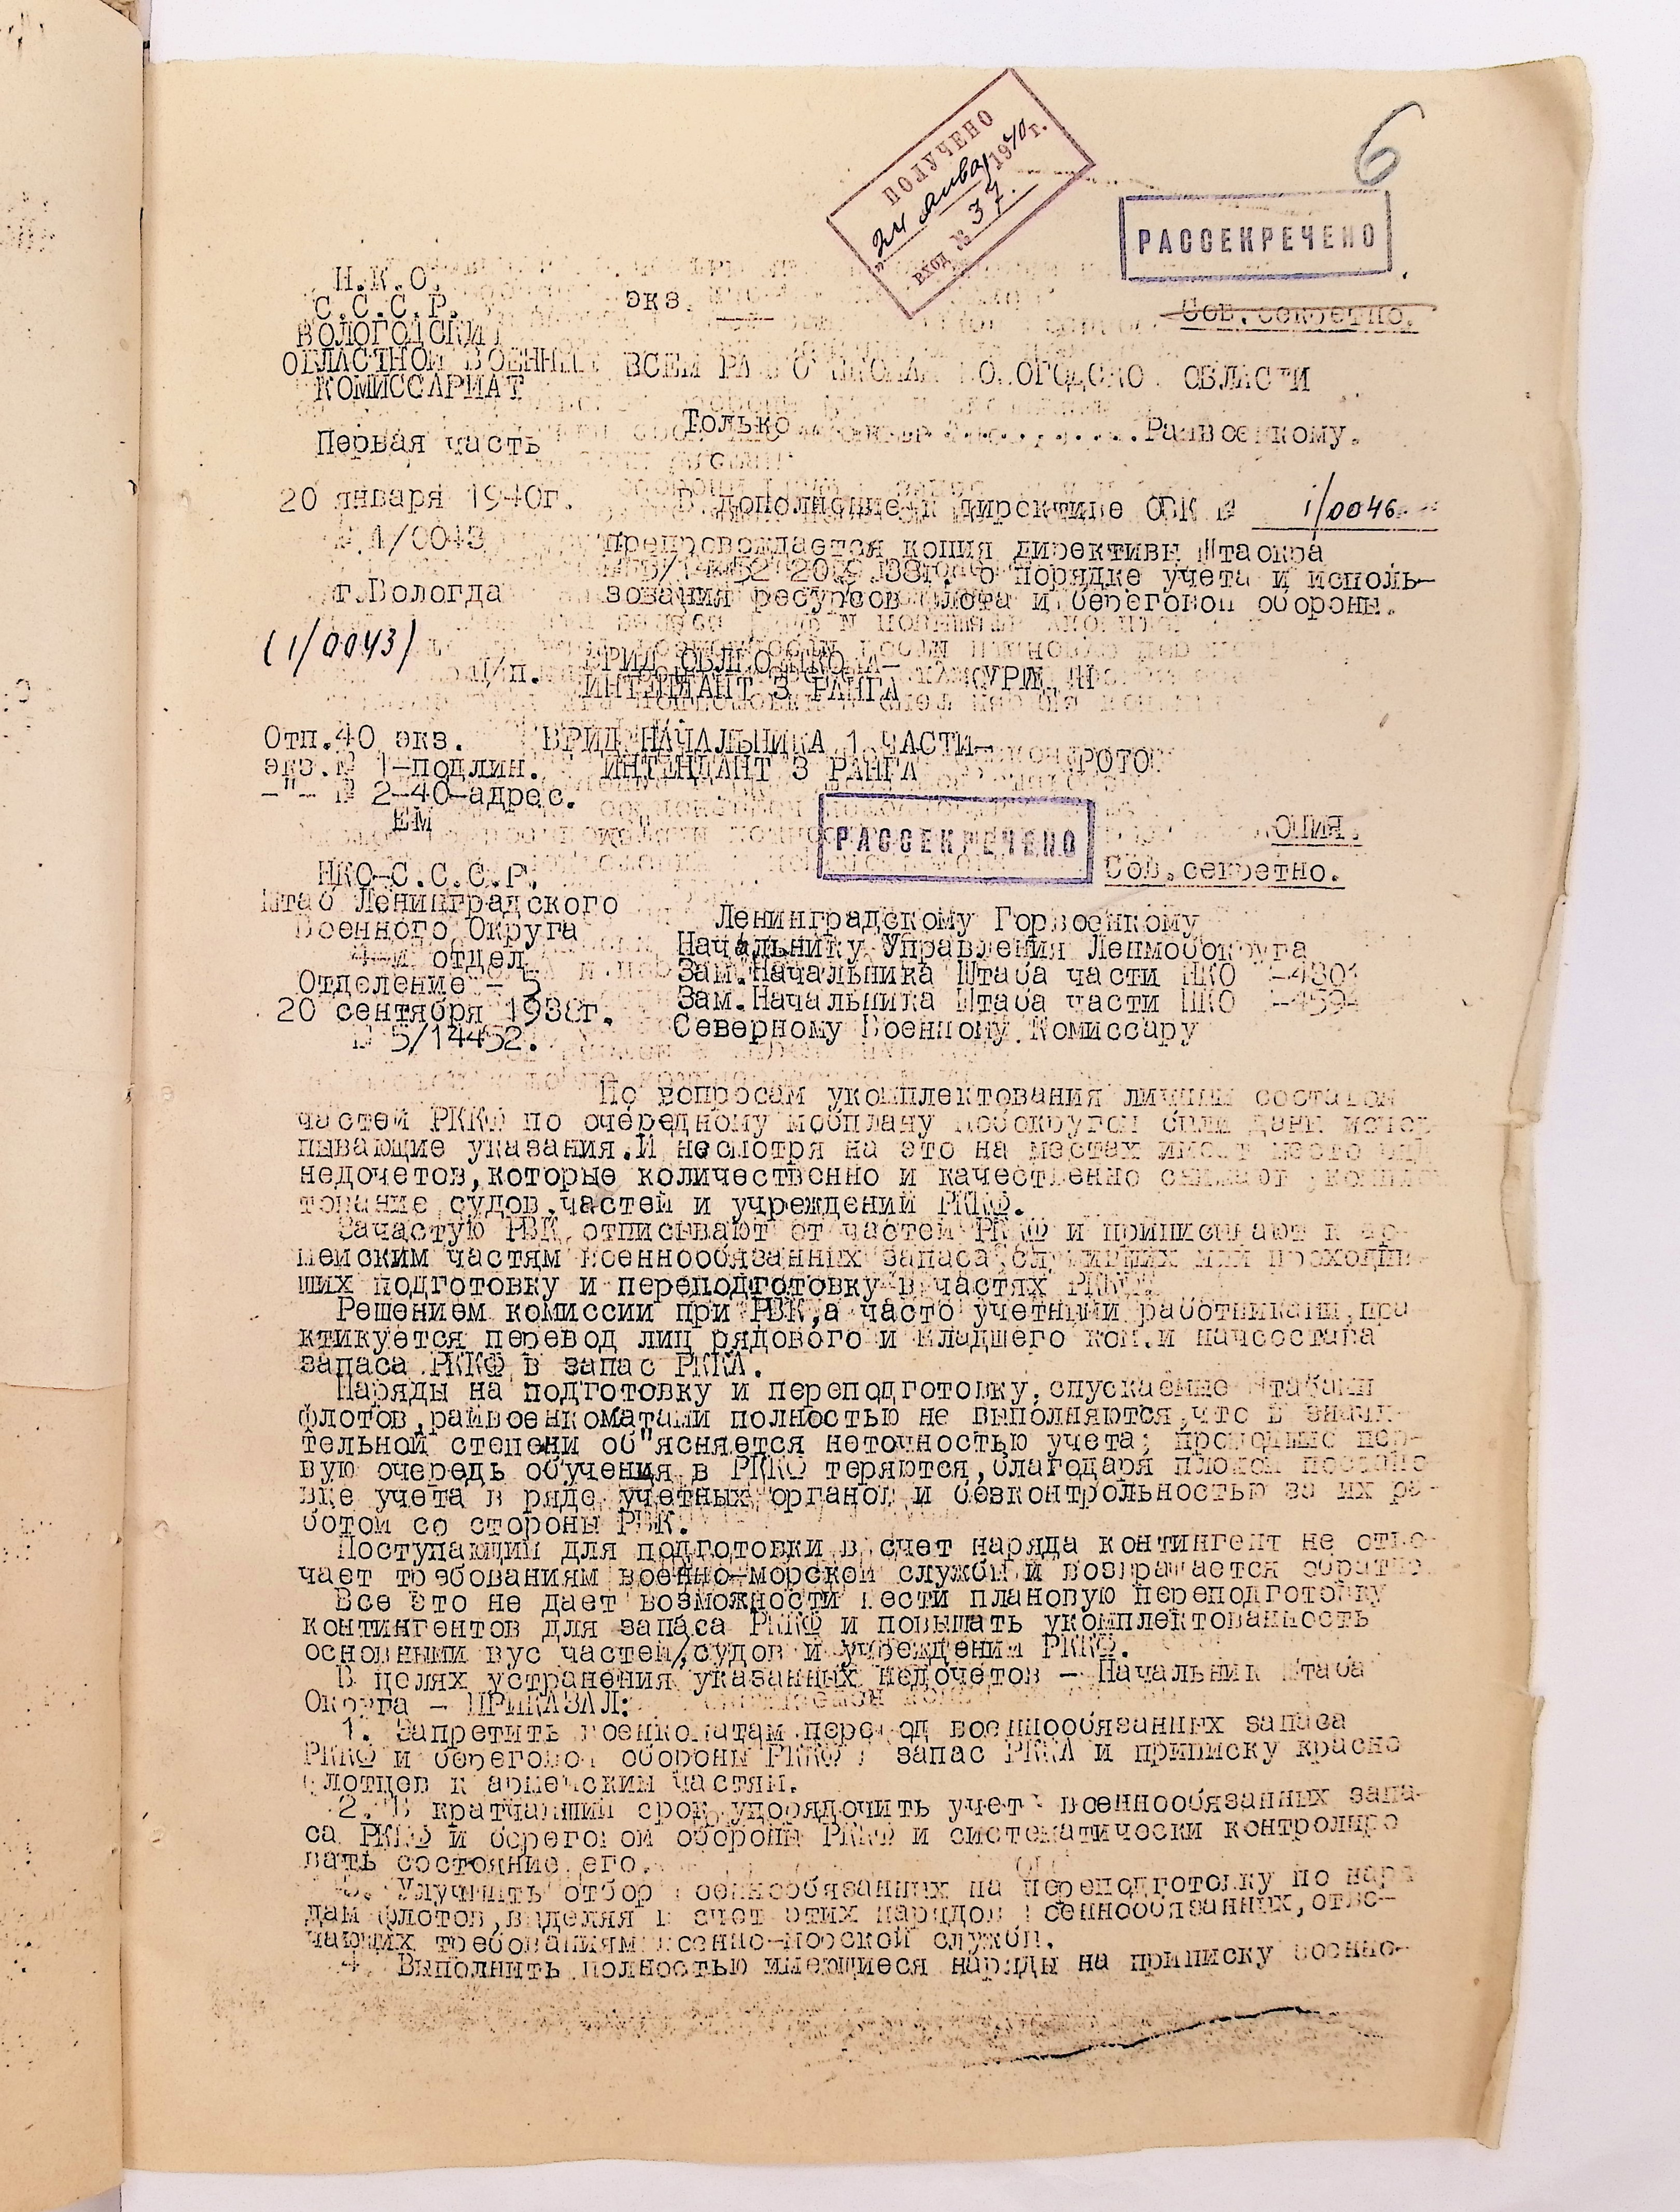 6
ПОЛУЧЕНО
"24 январ 1940 г.
ВХОД № 37.
РАССЕКРЕЧЕНО
Н.К.О.
С.С.С.Р.
экз.
Сов.секретно.
ВОЛОГОДСКИЙ
ОБЛАСТНОЙ ВОЕННЫЙ
КОМИССАРИАТ
ВСЕМ РАЙВОЕНКОМАМ ВОЛОГОДСКОЙ ОБЛАСТИ
Первая часть
Только Райвоенкому.
20 января 1940г.
В дополнение к директиве ОВК № 1/0046
№ 1/0043
препровождается копия директивы Штаокра
№ 5/14452 20.9.38г. о порядке учета и исполь-
г.Вологда
зования ресурсов флота и береговой обороны.
(1/0043)
п/п. ВРИД ОБЛВОЕНКОМА-
ИНТЕНДАНТ 3 РАНГА
Отп.40 экз.
ВРИД НАЧАЛЬНИКА 1 ЧАСТИ-
экз.№ 1-подлин.
ИНТЕНДАНТ 3 РАНГА
-"- № 2-40-адрес.
ЕМ
РАССЕКРЕЧЕНО
КОПИЯ.
Сов.секретно.
НКО-С.С.С.Р.
Штаб Ленинградского
Военного Округа
4-й отдел
Отделение - 5
20 сентября 1938г.
№ 5/14452.
Ленинградскому Горвоенкому
Начальнику Управления Ленмобокруга
Зам.Начальника Штаба части НКО №-4301
Зам.Начальника Штаба части НКО №-4594
Северному Военному Комиссару
По вопросам укомплектования личным составом
частей РККФ по очередному мобплану мобокругом были даны исчер
пывающие указания.И несмотря на это на местах имеет место ряд
недочетов,которые количественно и качественно снижают укомплек
тование судов,частей и учреждений РККФ.
Зачастую РВК отписывают от частей РККФ и приписывают к ар-
мейским частям военнообязанных запаса,служивших или проходив-
ших подготовку и переподготовку в частях РККФ.
Решением комиссии при РВК,а часто учетными работниками,пра
ктикуется перевод лиц рядового и младшего ком.и начсостава
запаса РККФ в запас РККА.
Наряды на подготовку и переподготовку,спускаемые Штабами
флотов,райвоенкоматами полностью не выполняются,что в значи-
тельной степени об"ясняется неточностью учета; прошедшие пер-
вую очередь обучения в РККФ теряются,благодаря плохой постано
вке учета в ряде учетных органов и безконтрольностью за их ра-
ботой со стороны РВК.
Поступающий для подготовки в счет наряда контингент не отве-
чает требованиям военно-морской службы и возвращается обратно.
Все это не дает возможности вести плановую переподготовку
контингентов для запаса РККФ и повышать укомплектованность
основными вус частей,судов и учреждений РККФ.
В целях устранения указанных недочетов - Начальник Штаба
Округа - ПРИКАЗАЛ:
1. Запретить военкоматам перевод военнообязанных запаса
РККФ и береговой обороны РККФ в запас РККА и приписку красно
флотцев к армейским частям.
2. В кратчайший срок упорядочить учет военнообязанных запа-
са РККФ и береговой обороны РККФ и систематически контролиро
вать состояние его.
3. Улучшить отбор военнообязанных на переподготовку по наря
дам флотов,выделяя в счет этих нарядов военнообязанных,отве-
чающих требованиям военно-морской службы.
4. Выполнить полностью имеющиеся наряды на приписку военно-